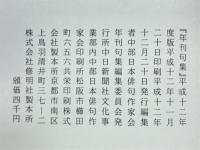 『年刊句集』平成十二年
度版平成十二年十一月
二十日印刷平成十二年
十二月二十日発行編集
者中部日本俳句作家会
年刊句集編集委員会発
行所中日新聞社文化事
業部内中部日本俳句作
家会印刷所松阪市幡田
町六五六共栄印刷株式
会社製本所京都市南区
上鳥羽清井町三七ー二
株式会社修明社製本所
頒価四千円